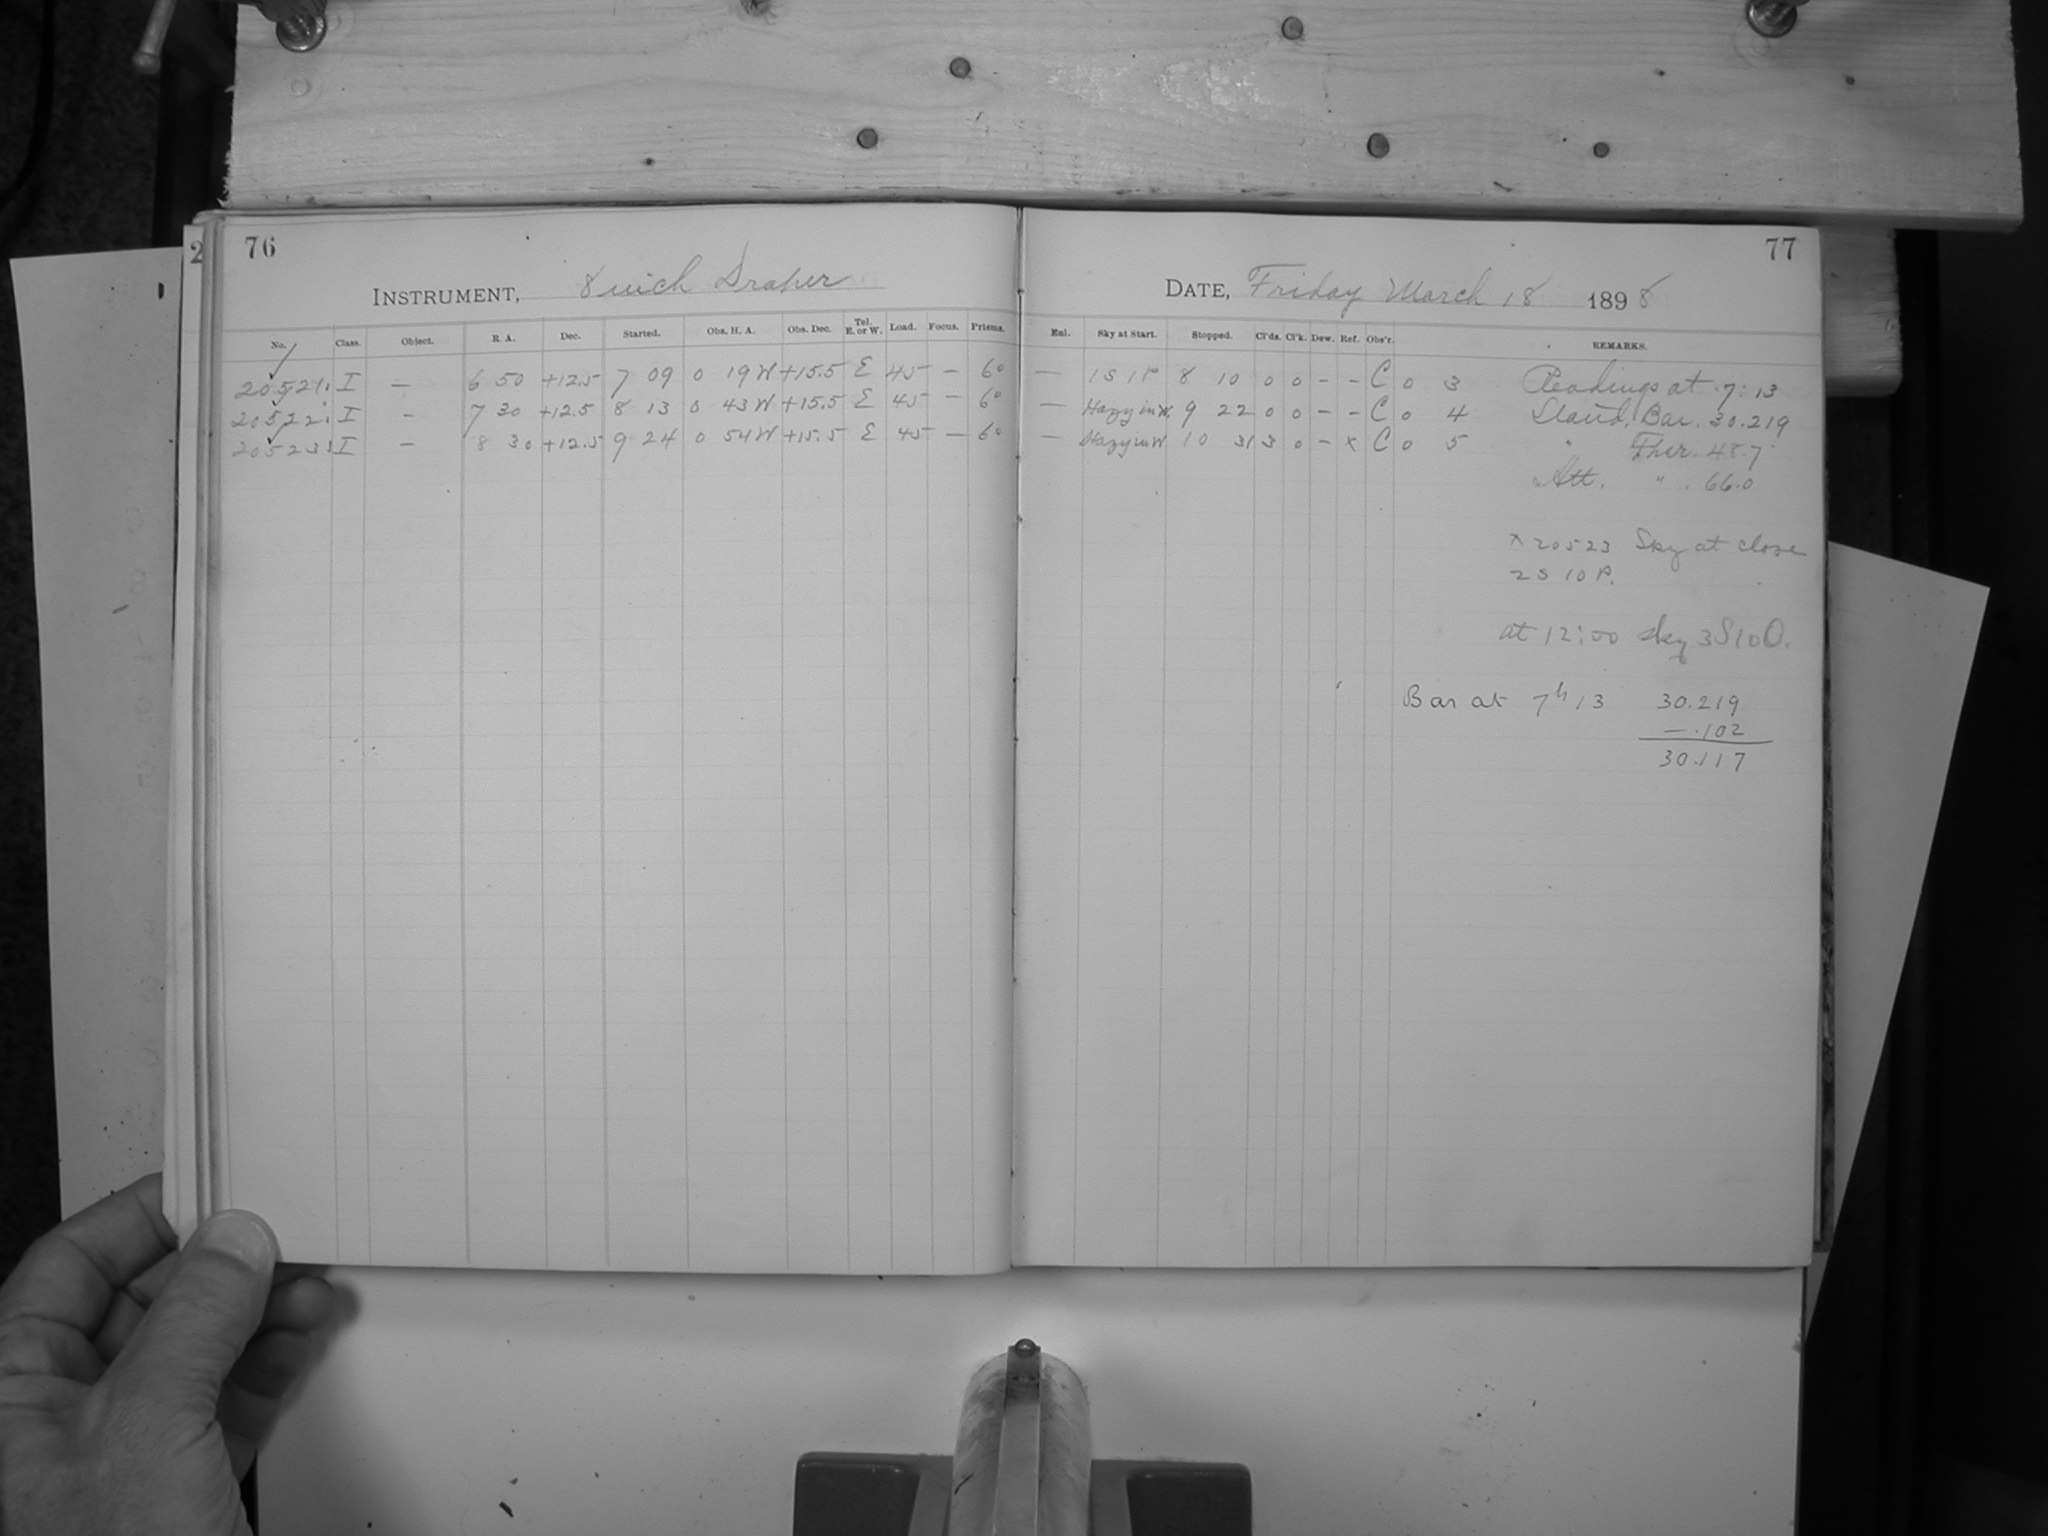 2
76
77
INSTRUMENT, 8 inch Draper
DATE, Friday March 18 1898
No. Class. Object. R. A. Dec. Started. Obs. H. A. Obs. Dec. Tel. E. or W. Load. Focus. Prisms. Enl. Sky at Start. Stopped. Cl'ds. Cl'k. Dew. Ref. Obs'r. REMARKS.
20521 I — 6 50 +12.5 7 09 0 19 W +15.5 E 45 — 60 — 1S 1P 8 10 0 0 - - C 0 3 Readings at 7:13
20522 I — 7 30 +12.5 8 13 0 43 W +15.5 E 45 — 60 — Hazy in W. 9 22 0 0 - - C 0 4 Stand. Bar. 30.219
20523 I — 8 30 +12.5 9 24 0 54 W +15.5 E 45 — 60 — Hazy in W 10 31 3 0 - x C 0 5 " Ther. 48.7
Att. " . 66.0
x 20523 Sky at close
2 S 10 P.
at 12:00 sky 3S10O.
Bar at 7h 13 30.219
— .102
30.117